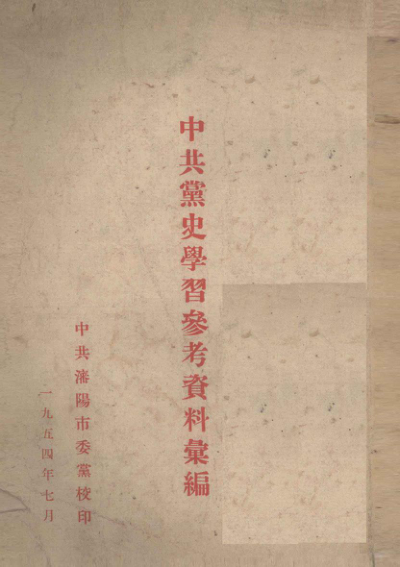 中共黨史學習參考資料彙編
中共瀋陽市委黨校印
一九五四年七月